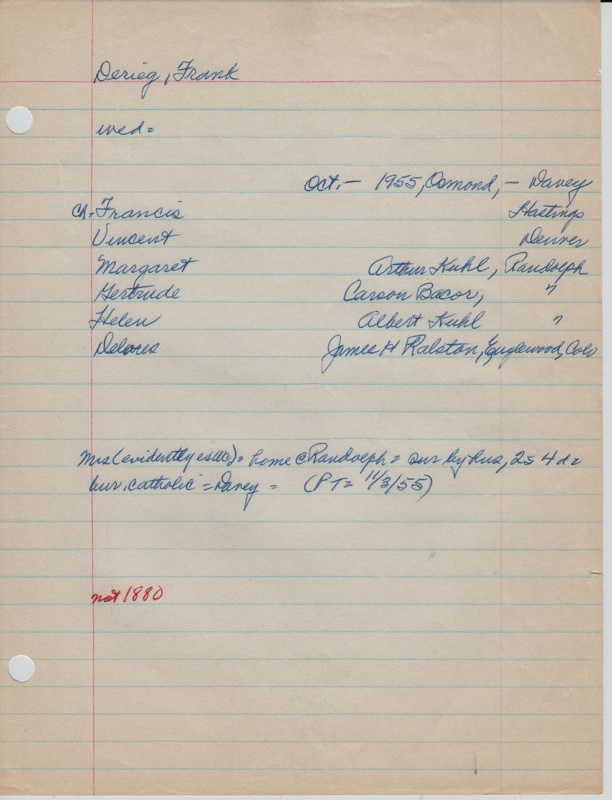 Derieg, Frank
wed =
Oct. — 1955, Osmond, — Davey
ch. Francis Hastings
Vincent Denver
Margaret Arthur Kuhl, Randolph
Gertrude Carson Bacor, "
Helen Albert Kuhl "
Delores James H Ralston, Englewood, Colo
Mrs (evidently = home @ Randolph = sur by hus, 2s 4d =
bur. catholic = Davey = (PT= 11/3/55)
not 1880